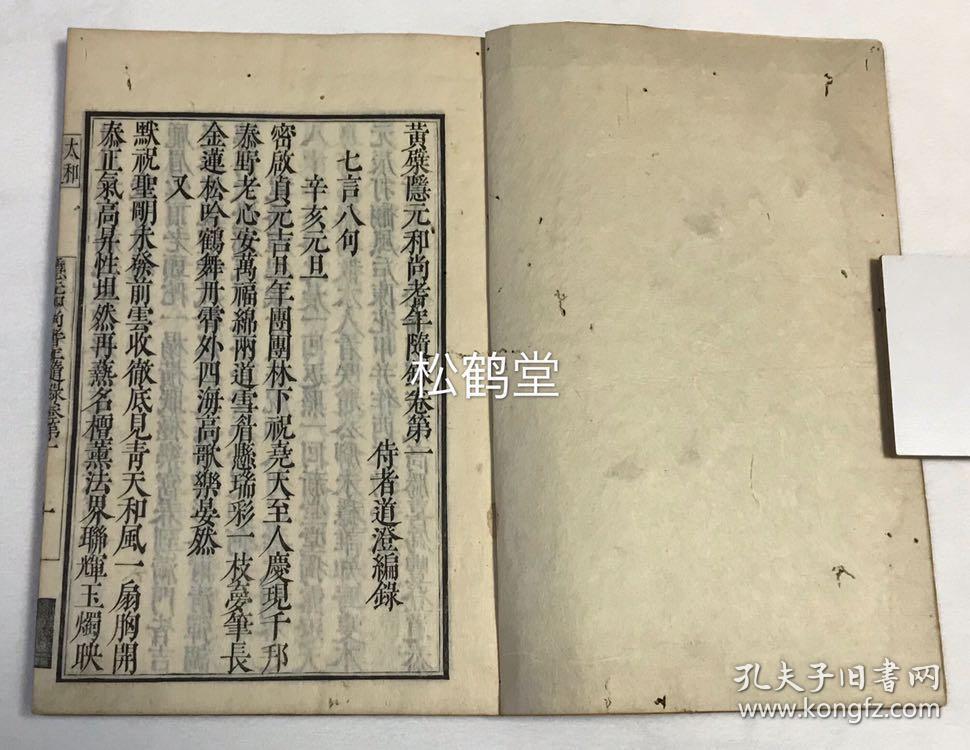 黄檗隱元和尚耆年隨錄卷第一
侍者道澄編錄
七言八句
辛亥元旦
密啟貞元吉旦年團團林下祝堯天至人慶現千邦
泰野老心安萬福綿兩道雪眉懸瑞彩一枝夢筆長
金蓮松吟鶴舞丹霄外四海高歌樂晏然
又
默祝聖明未發前雲收徹底見青天和風一扇胸開
泰正氣高昇性坦然再爇名檀薰法界聯輝玉燭映
太和
隱元和尚耆年隨錄卷第一
一
松鹤堂
孔夫子旧书网
www.kongfz.com